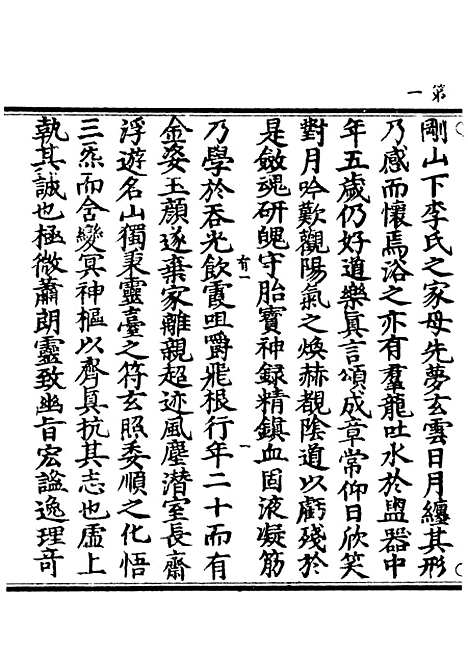 第一
剛山下李氏之家母先夢玄雲日月纏其形
乃感而懷焉浴之亦有羣龍吐水於盥器中
年五歲仍好道樂真言頌成章常仰日欣笑
對月吟歎觀陽氣之煥赫覩陰道以虧殘於
是斂魂研魄守胎寶神録精鎮血固液凝筋
有一
一
乃學於吞光飲霞咀嚼飛根行年二十而有
金姿玉顏遂棄家離親超迹風塵潛室長齋
浮遊名山獨秉靈臺之符玄照委順之化悟
三炁而含變冥神樞以齊真抗其志也虛上
執其誠也極微蕭朗靈致幽旨宏謐逸理竒